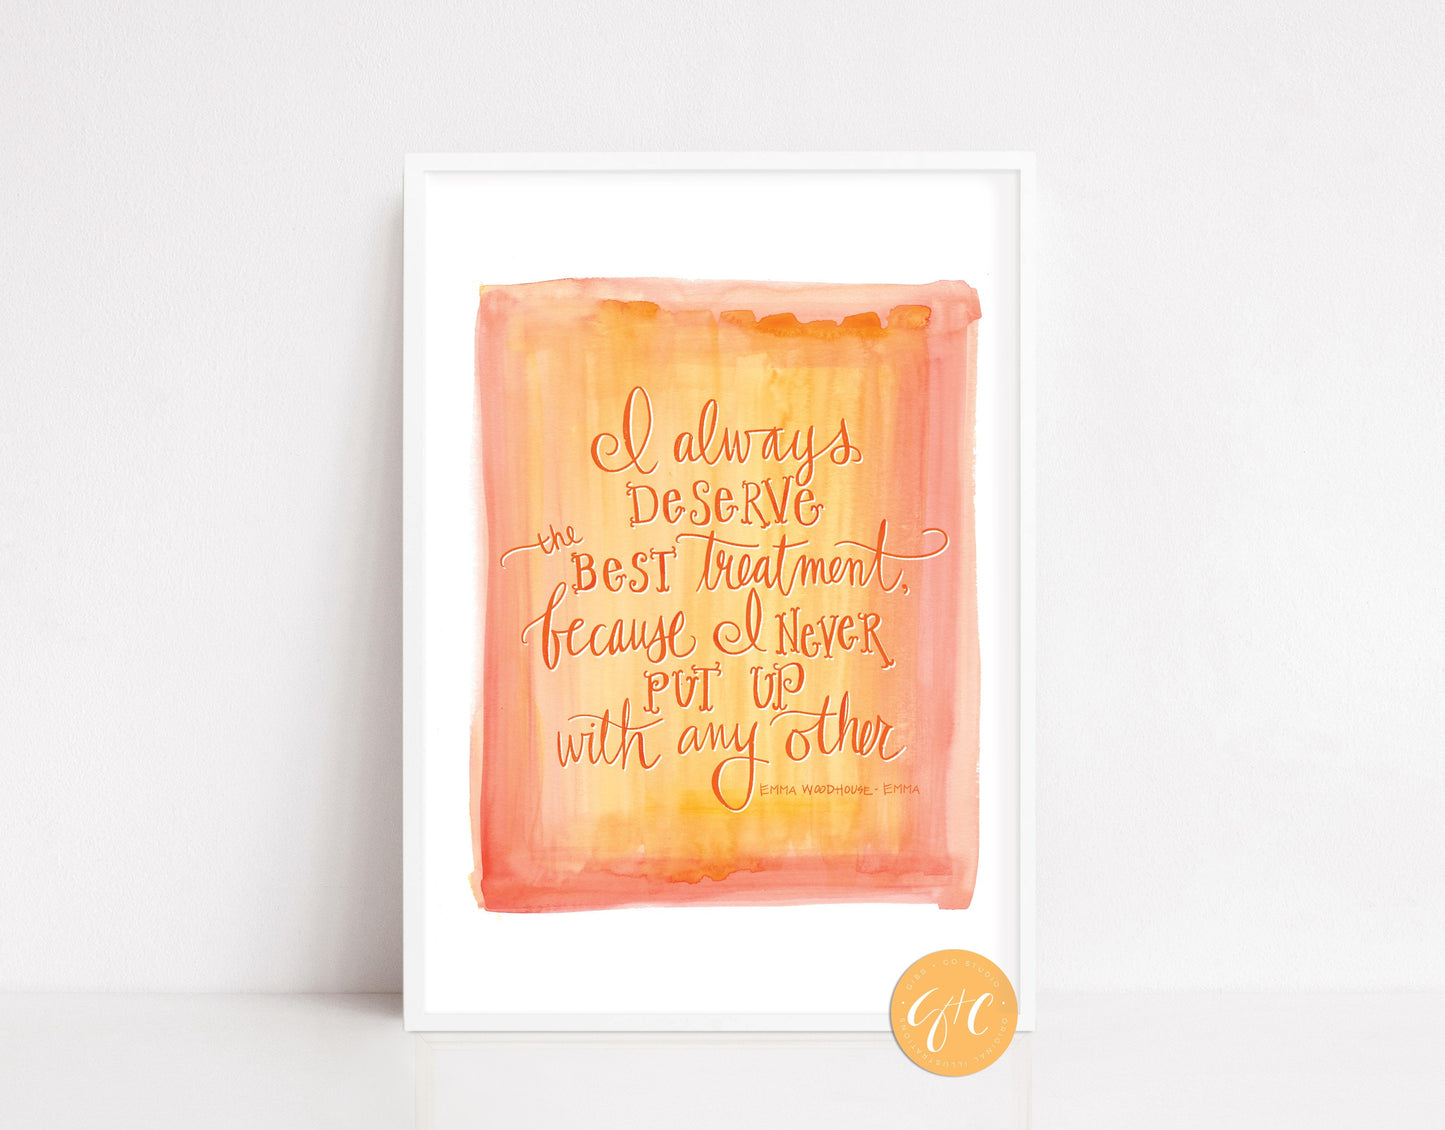 I always
DESERVE
the BEST treatment,
because I NEVER
PUT UP
with any other
EMMA WOODHOUSE - EMMA
GIBB + CO STUDIO
G+C
ORIGINAL ILLUSTRATIONS